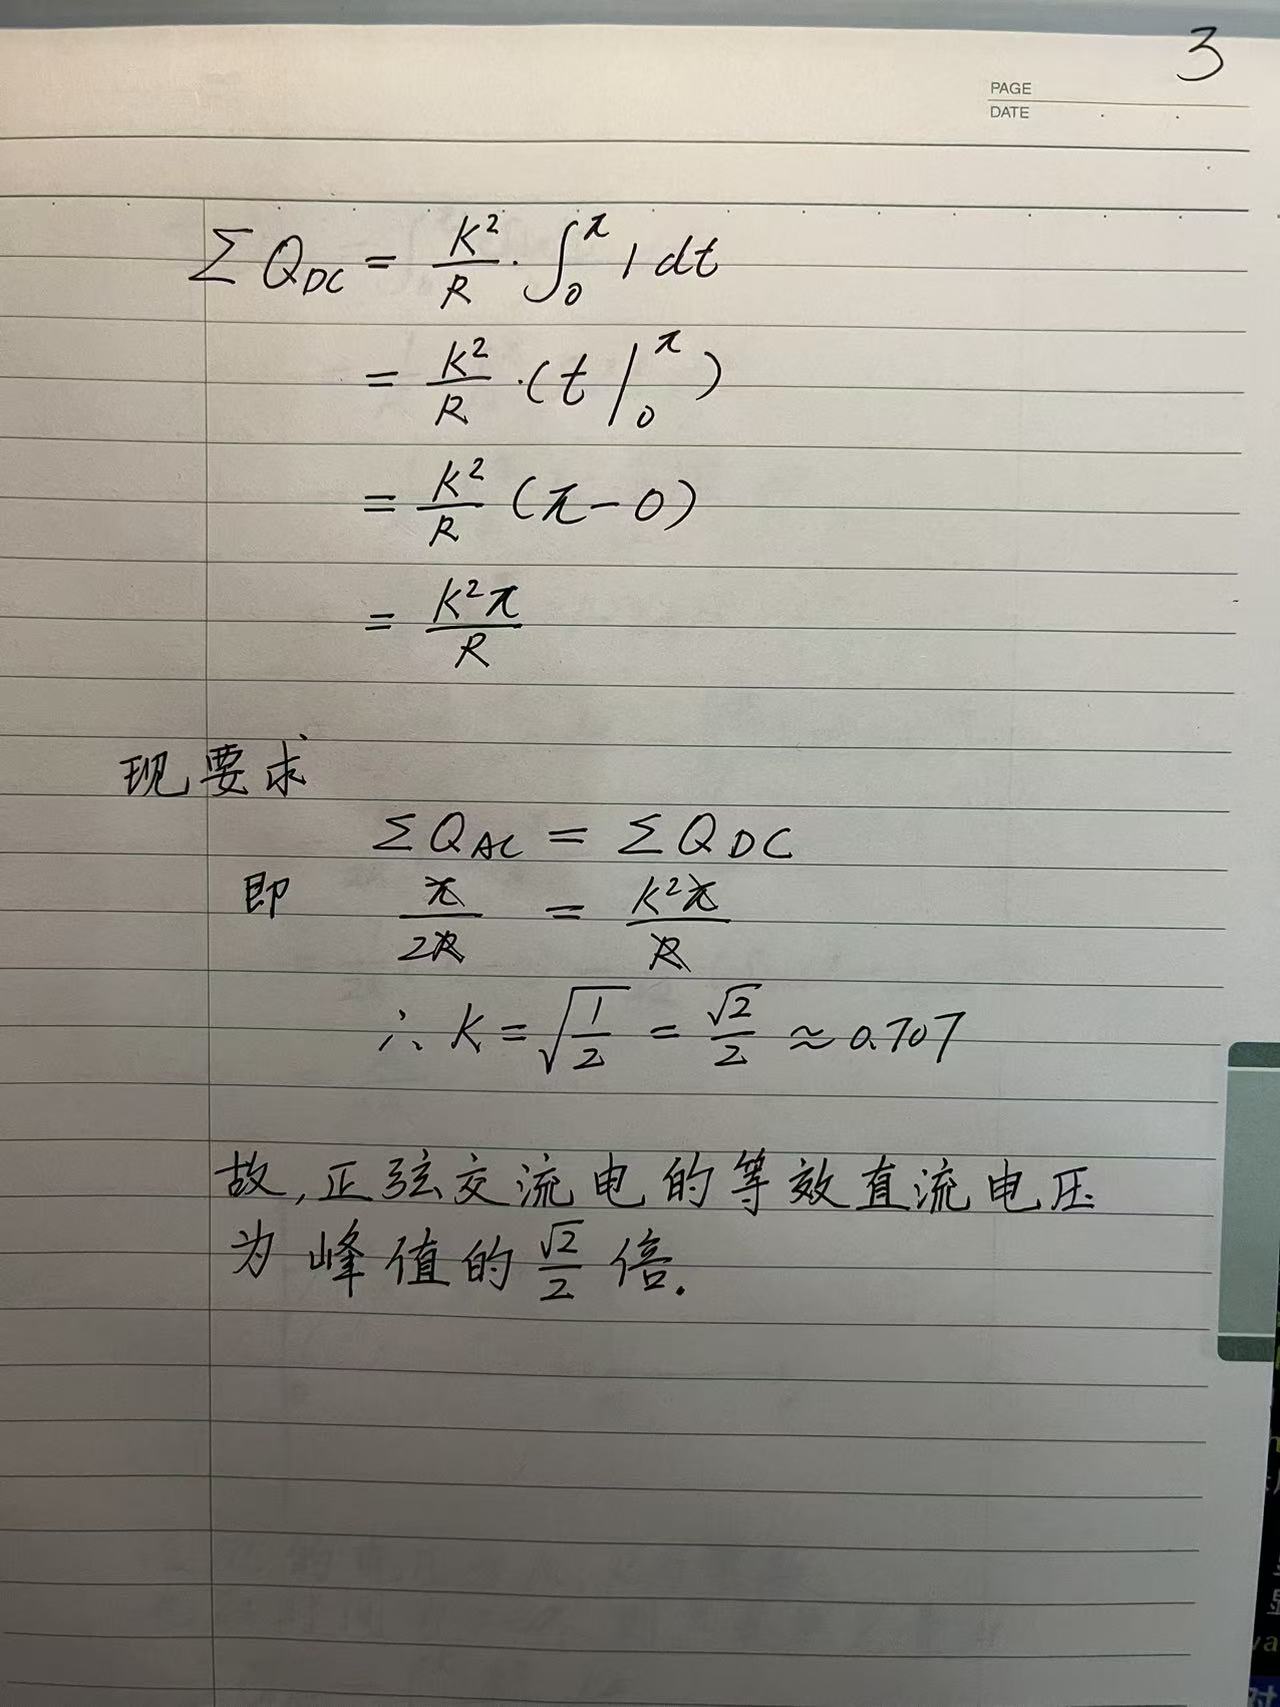 3
PAGE
DATE
ΣQ_DC = K²/R · ∫₀^π 1 dt
= K²/R · (t |₀^π)
= K²/R (π - 0)
= K²π/R
现要求
ΣQ_AC = ΣQ_DC
即 π/2R = K²π/R
∴ K = √(1/2) = √2/2 ≈ 0.707
故,正弦交流电的等效直流电压
为峰值的 √2/2 倍.